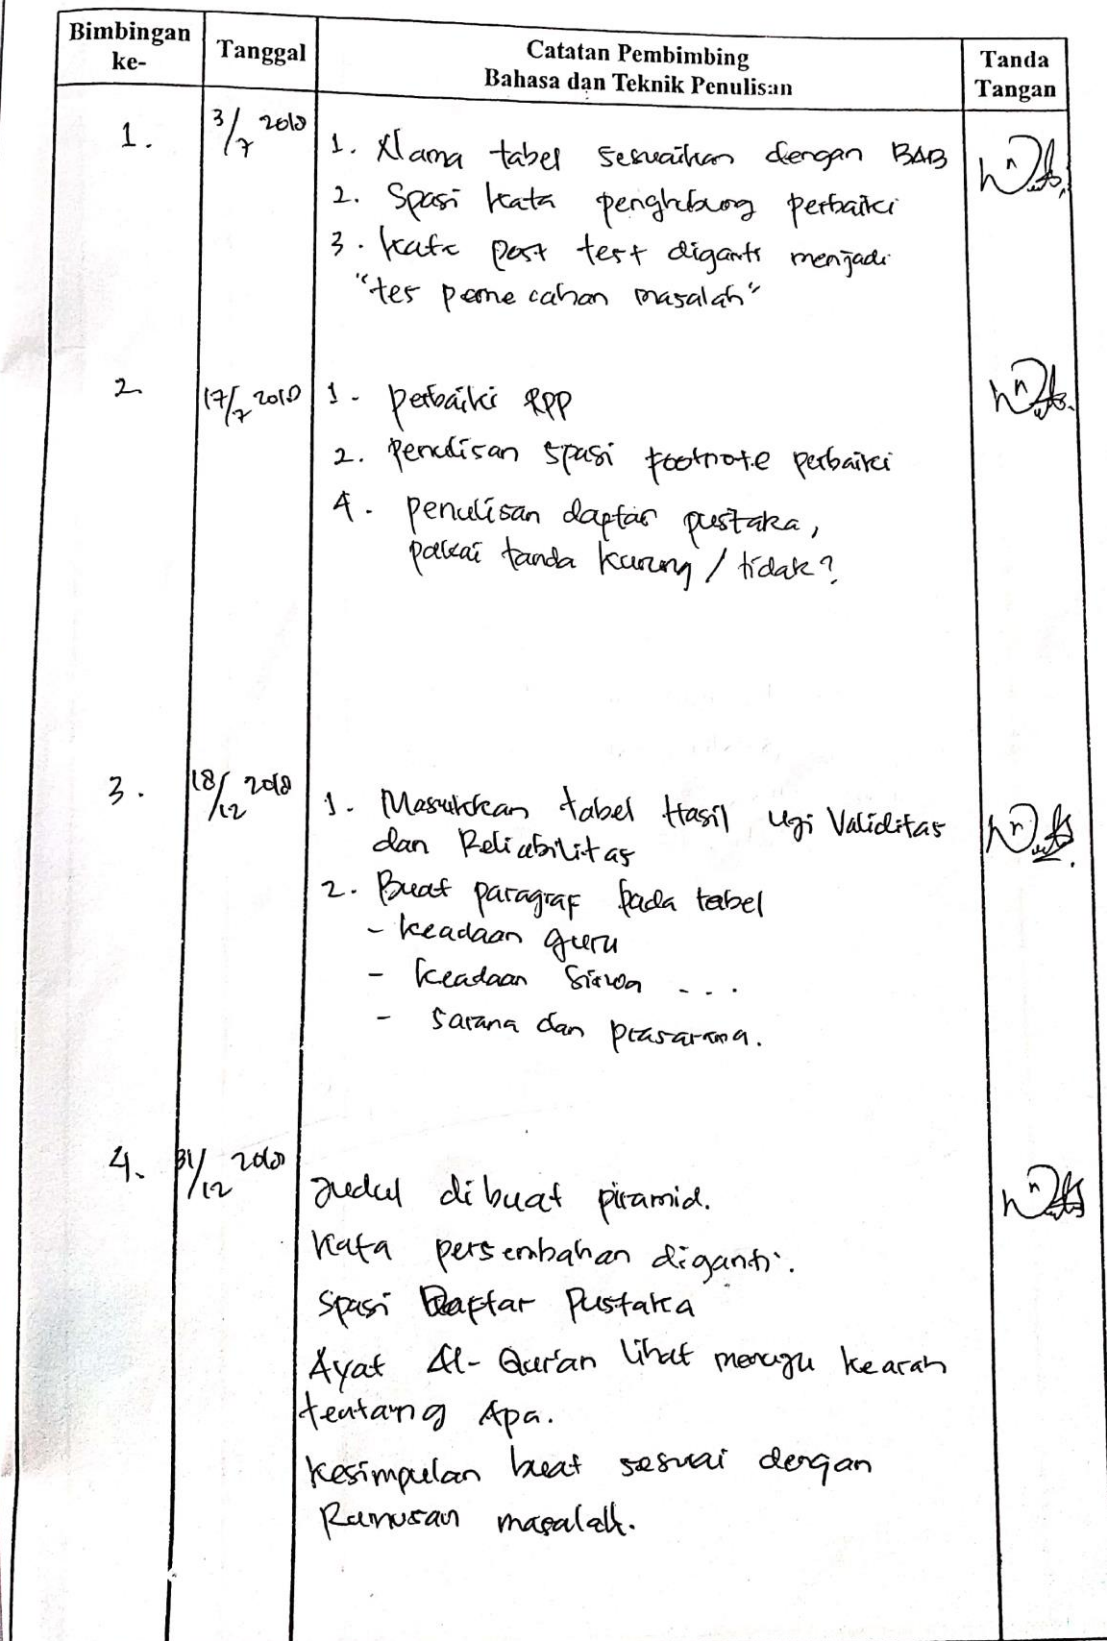 Bimbingan ke-
Tanggal
Catatan Pembimbing
Bahasa dan Teknik Penulisan
Tanda Tangan
1.
3/7 2018
1. Nama tabel sesuaikan dengan BAB
2. Spasi kata penghubung perbaiki
3. Kata post test diganti menjadi
"tes pemecahan masalah"
2
17/7 2018
1. perbaiki RPP
2. Penulisan spasi footnote perbaiki
4. penulisan daptar pustaka,
pakai tanda kurung / tidak?
3.
18/12 2018
1. Masukkan tabel Hasil Uji Validitas
dan Reliabilitas
2. Buat paragraf pada tabel
- keadaan guru
- keadaan siswa ...
- sarana dan prasarana.
4.
31/12 2018
Judul dibuat piramid.
Kata persembahan diganti.
Spasi Daptar Pustaka
Ayat Al-Qur'an lihat mengu kearah
tentang Apa.
Kesimpulan buat sesuai dengan
Rumusan masalah.